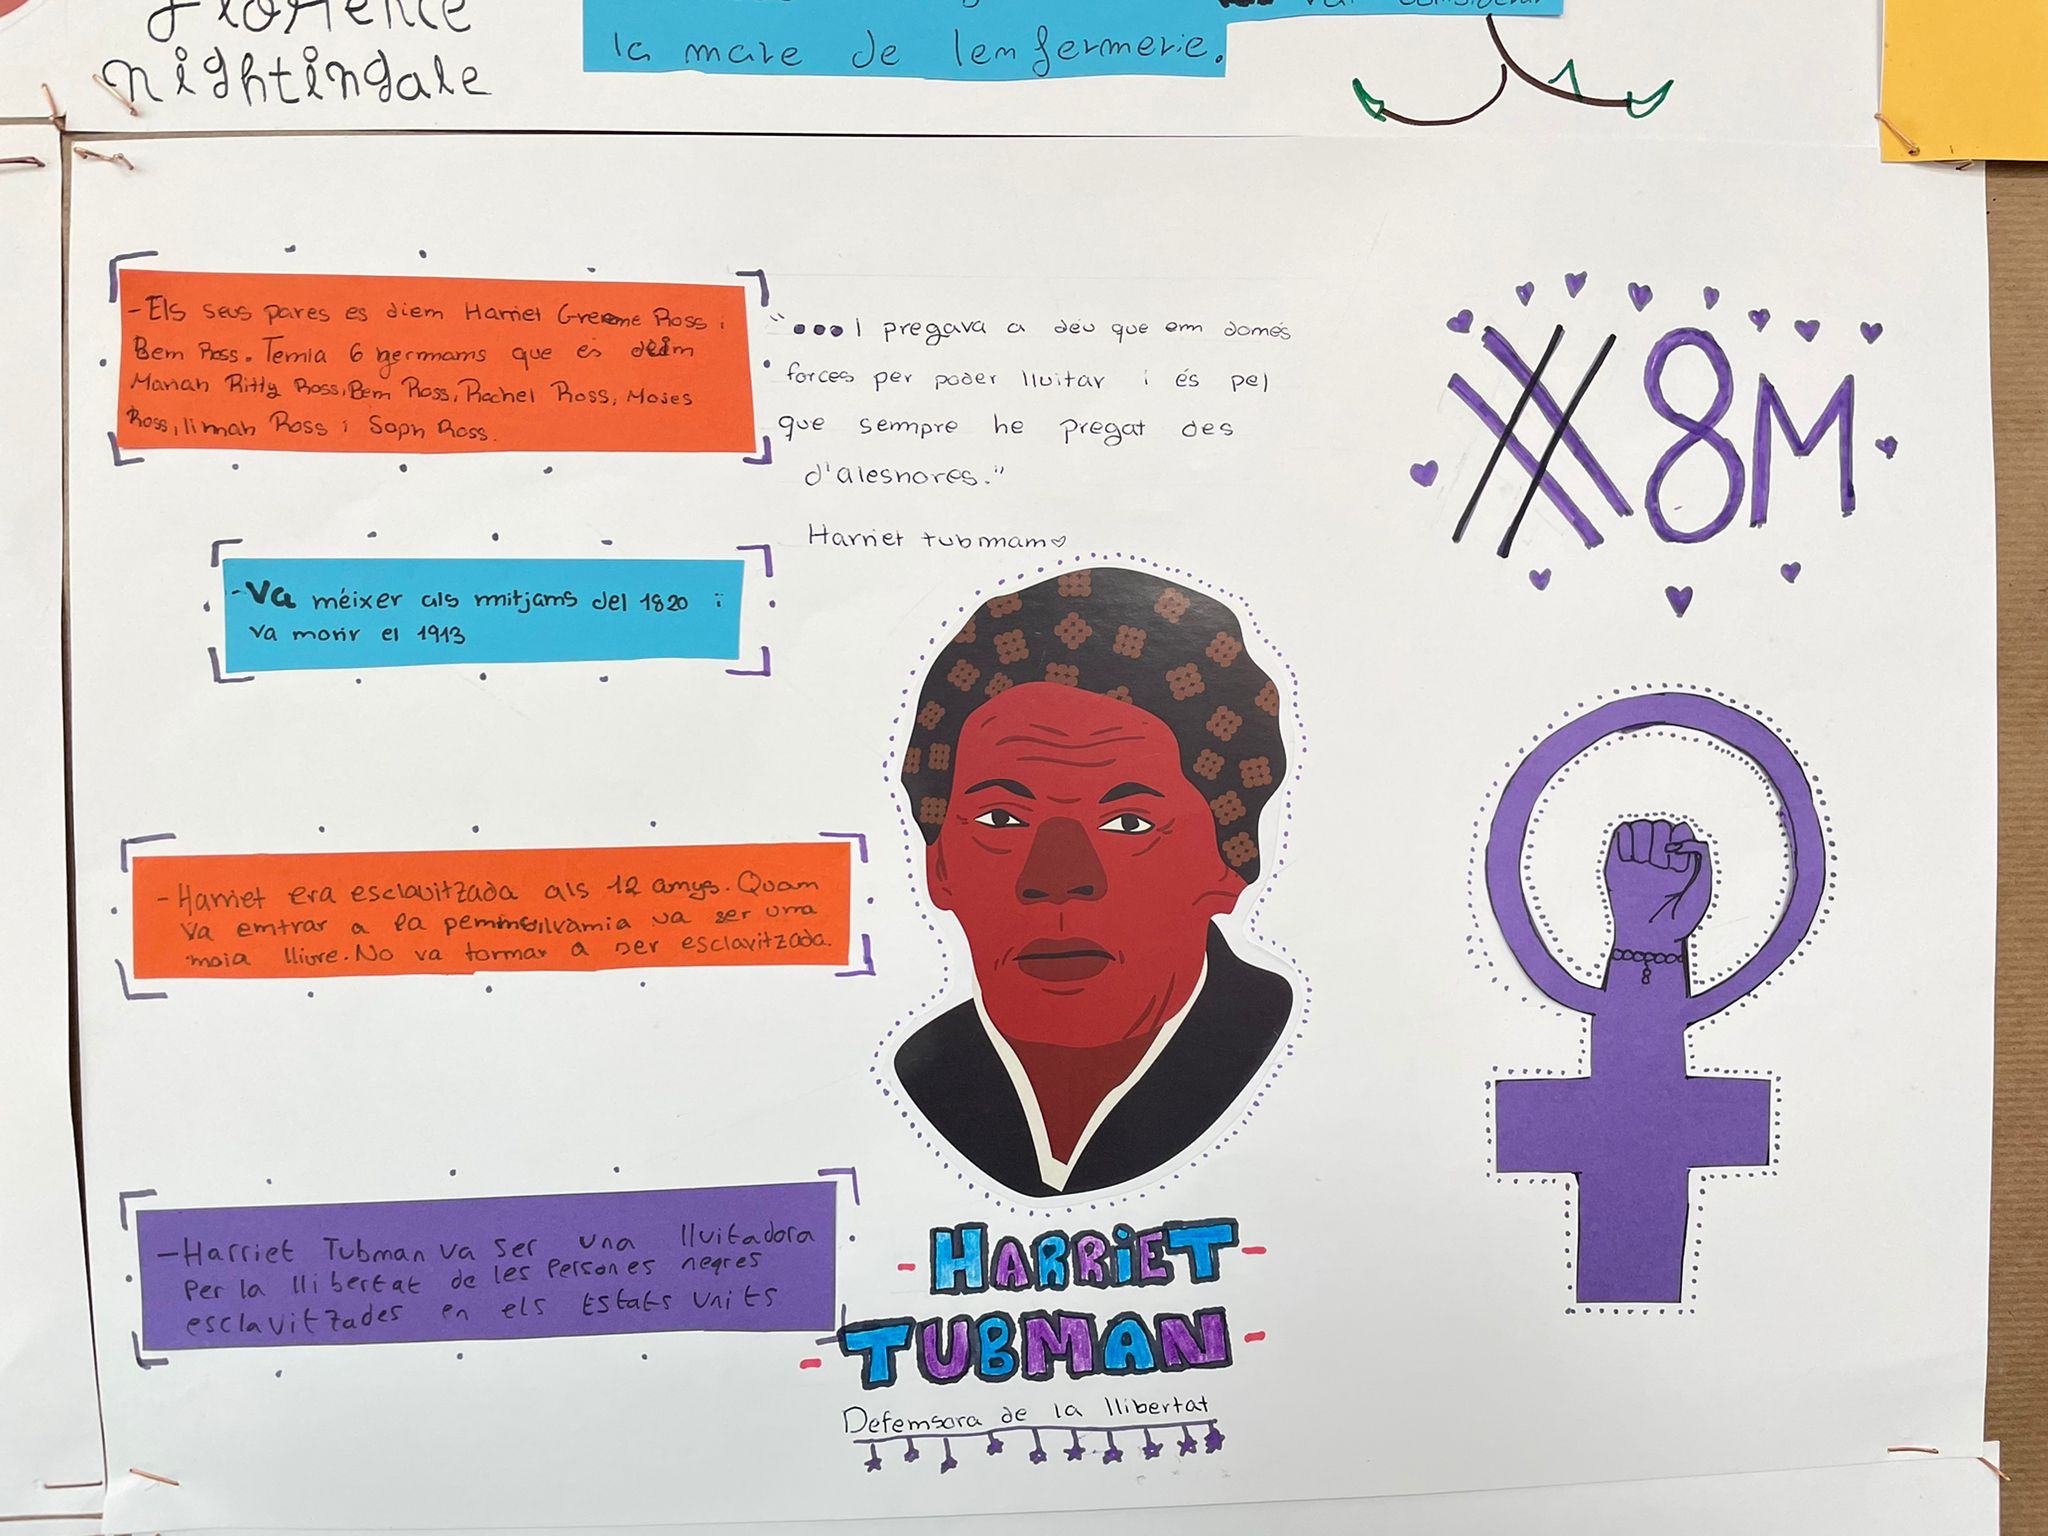 Florence
nightingale
la mare de lenfermerie.
-Els seus pares es diem Harriet Greeme Ross i
Bem Ross. Temia 6 germams que es deim
Mariah Ritty Ross, Bem Ross, Rachel Ross, Moses
Ross, linnah Ross i Soph Ross.
"...I pregava a déu que em domés
forces per poder lluitar i és pel
que sempre he pregat des
d'alesnores."
Harriet tubmam
#8M
-Va méixer als mitjams del 1820 i
va morir el 1913
-Harriet era esclavitzada als 12 amys. Quam
va emtrar a la pemmsilvàmia va ser uma
moia lliure. No va tormar a ser esclavitzada.
-Harriet Tubman va ser una lluitadora
Per la llibertat de les persones negres
esclavitzades en els Estats Units
-HARRiET-
-TUBMAN-
Defemsora de la llibertat